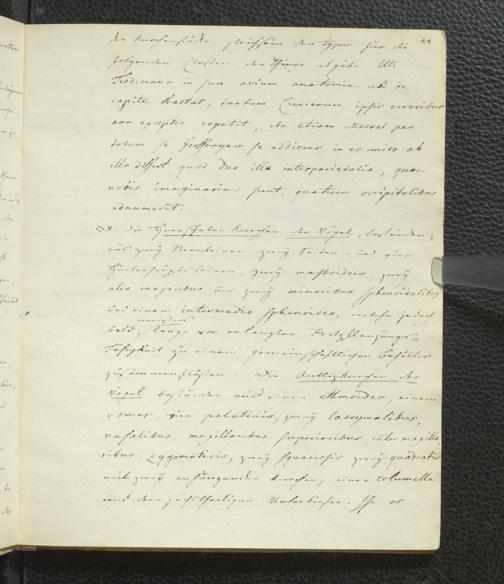 der Knochenstücke, gleichsam den typus für die
folgenden Classen der Thiere abgäbe. Uti
Tiedemann in sua avium anatomia ubi de
capite tractat, tantum Cuvierum ipsis erroribus
non exceptis repetit, ita etiam Meckel per
totum se Geoffroyeo se addicens in eo unico ab
illo differt quod duo illa interparietalia, quae
nobis imaginaria sunt, quatuor occipitalibus
adnumeret.
§ 8. Die Hirnschalen Knochen der Vögel, bestünden
aus zwey Stirnbeinen, zwey Seiten - und vier
Hinterhauptsbeinen, zwey mastoideis, zwey
alis majoribus und zwey minoribus sphenoidalibus
und einem intermedio sphenoideo, welche jedoch
bald, lange vor erlangter Fortpflanzungs-
Fähigkeit zu einem gemeinschaftlichen Behälter
zusammenflößen. Die Antlitzknochen der
Vögel bestünden aus einem ethmoideo, einem
vomer, vier palatinis, zwey lacrymalibus,
nasalibus, maxillaribus superioribus, intermaxilla
ribus, zygomaticis, zwey squamosis zwey quadratis
mit zwey anhängenden Knochen, einer columella
und dem sechstheiligen Unterkiefer.